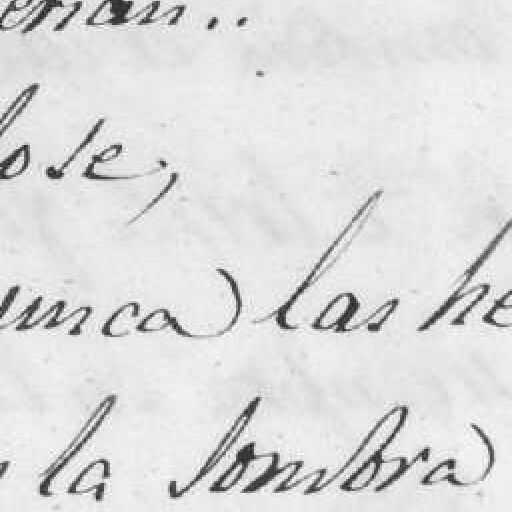 erian..
lose,
unca las he
la sombra